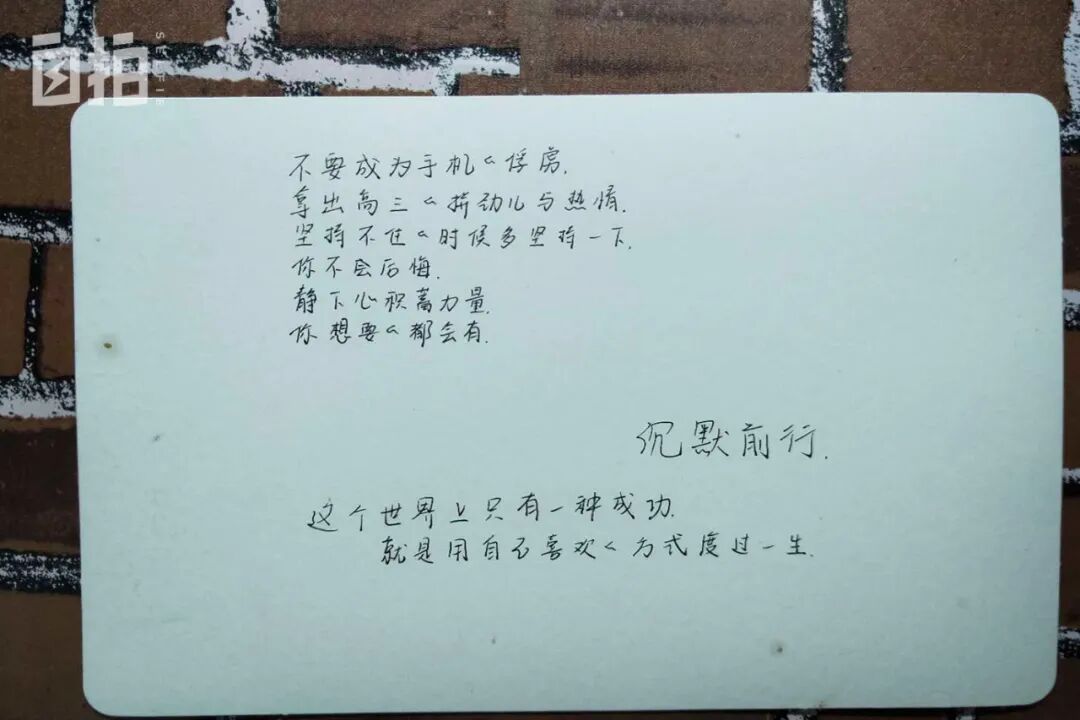 自拍
SELFIE
不要成为手机的俘虏.
拿出高三的拼劲儿与热情.
坚持不住的时候多坚持一下.
你不会后悔.
静下心积蓄力量.
你想要的都会有.
沉默前行.
这个世界上只有一种成功.
就是用自己喜欢的方式度过一生.